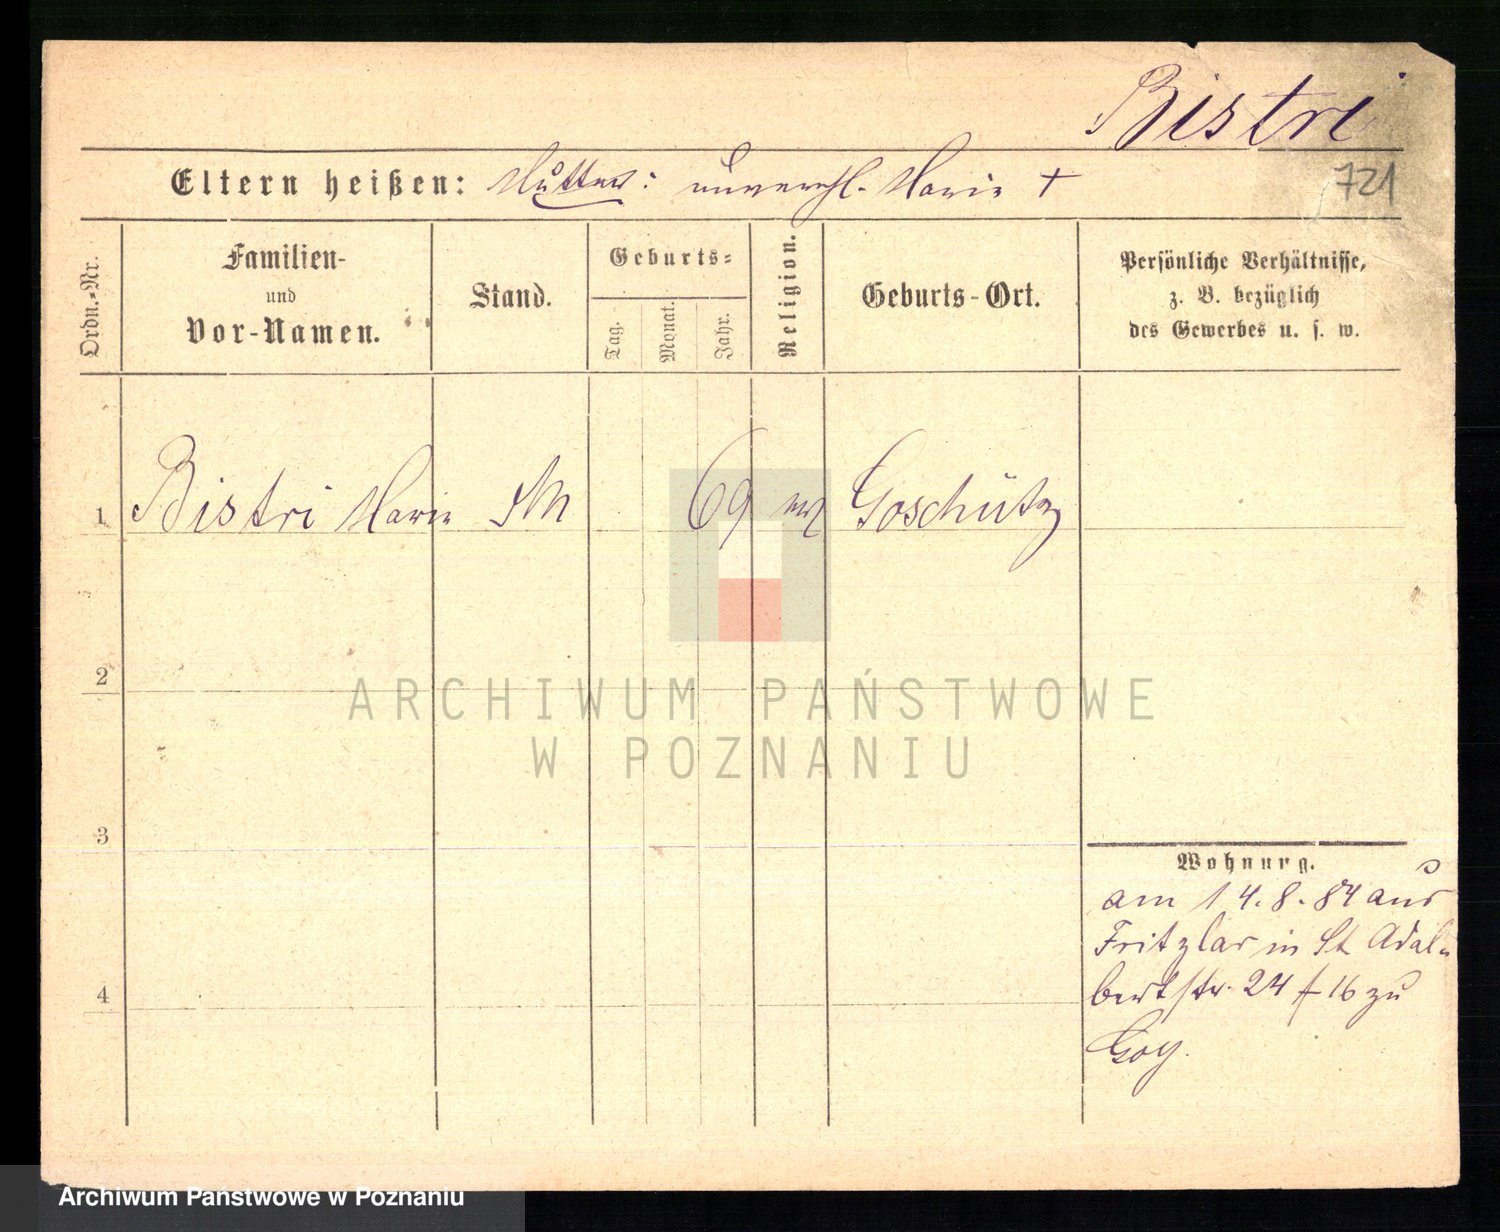 Bistri
721
Eltern heißen: Mutter: unverehl. Marie +
Ordn.-Nr.
Familien-
und
Vor-Namen.
Stand.
Geburts-
Tag.
Monat.
Jahr.
Religion.
Geburts-Ort.
Persönliche Verhältnisse,
z. B. bezüglich
des Gewerbes u. s. w.
1 Bistri Marie 69 Goschütz
2
3
4
Wohnung.
am 14.8.84 aus
Fritzlar in St Adal-
bertstr. 24 f 16 zu
Goy.
ARCHIWUM PAŃSTWOWE
W POZNANIU
Archiwum Państwowe w Poznaniu